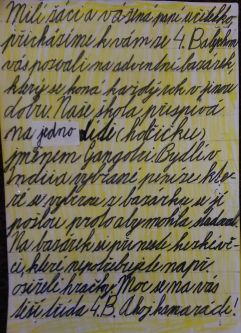 Milí žáci a vážená paní učitelko,
přicházíme k vám ze 4.B abychom
vás pozvali na adventní bazárek,
který se koná každý rok v jinou
dobu. Naše škola přispívá
na jedno dítě (holčičku)
jménem Gangotri. Bydlí v
Indii a vybrané peníze kte-
ré se vyberou z bazárku se jí
pošlou proto aby mohla studovat.
Na bazárek si přineste
které nepotřebujete např.
hračky. Moc se na vás
těší třída 4.B. Ahoj kamarádi!